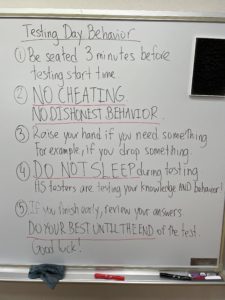 Testing Day Behavior
① Be seated 3 minutes before
testing start time
② NO CHEATING.
NO DISHONEST BEHAVIOR.
③ Raise your hand if you need something.
For example, if you drop something.
④ DO NOT SLEEP during testing
HS testers are testing your knowledge AND behavior!
⑤ If you finish early, review your answers.
DO YOUR BEST UNTIL THE END of the test.
Good luck!